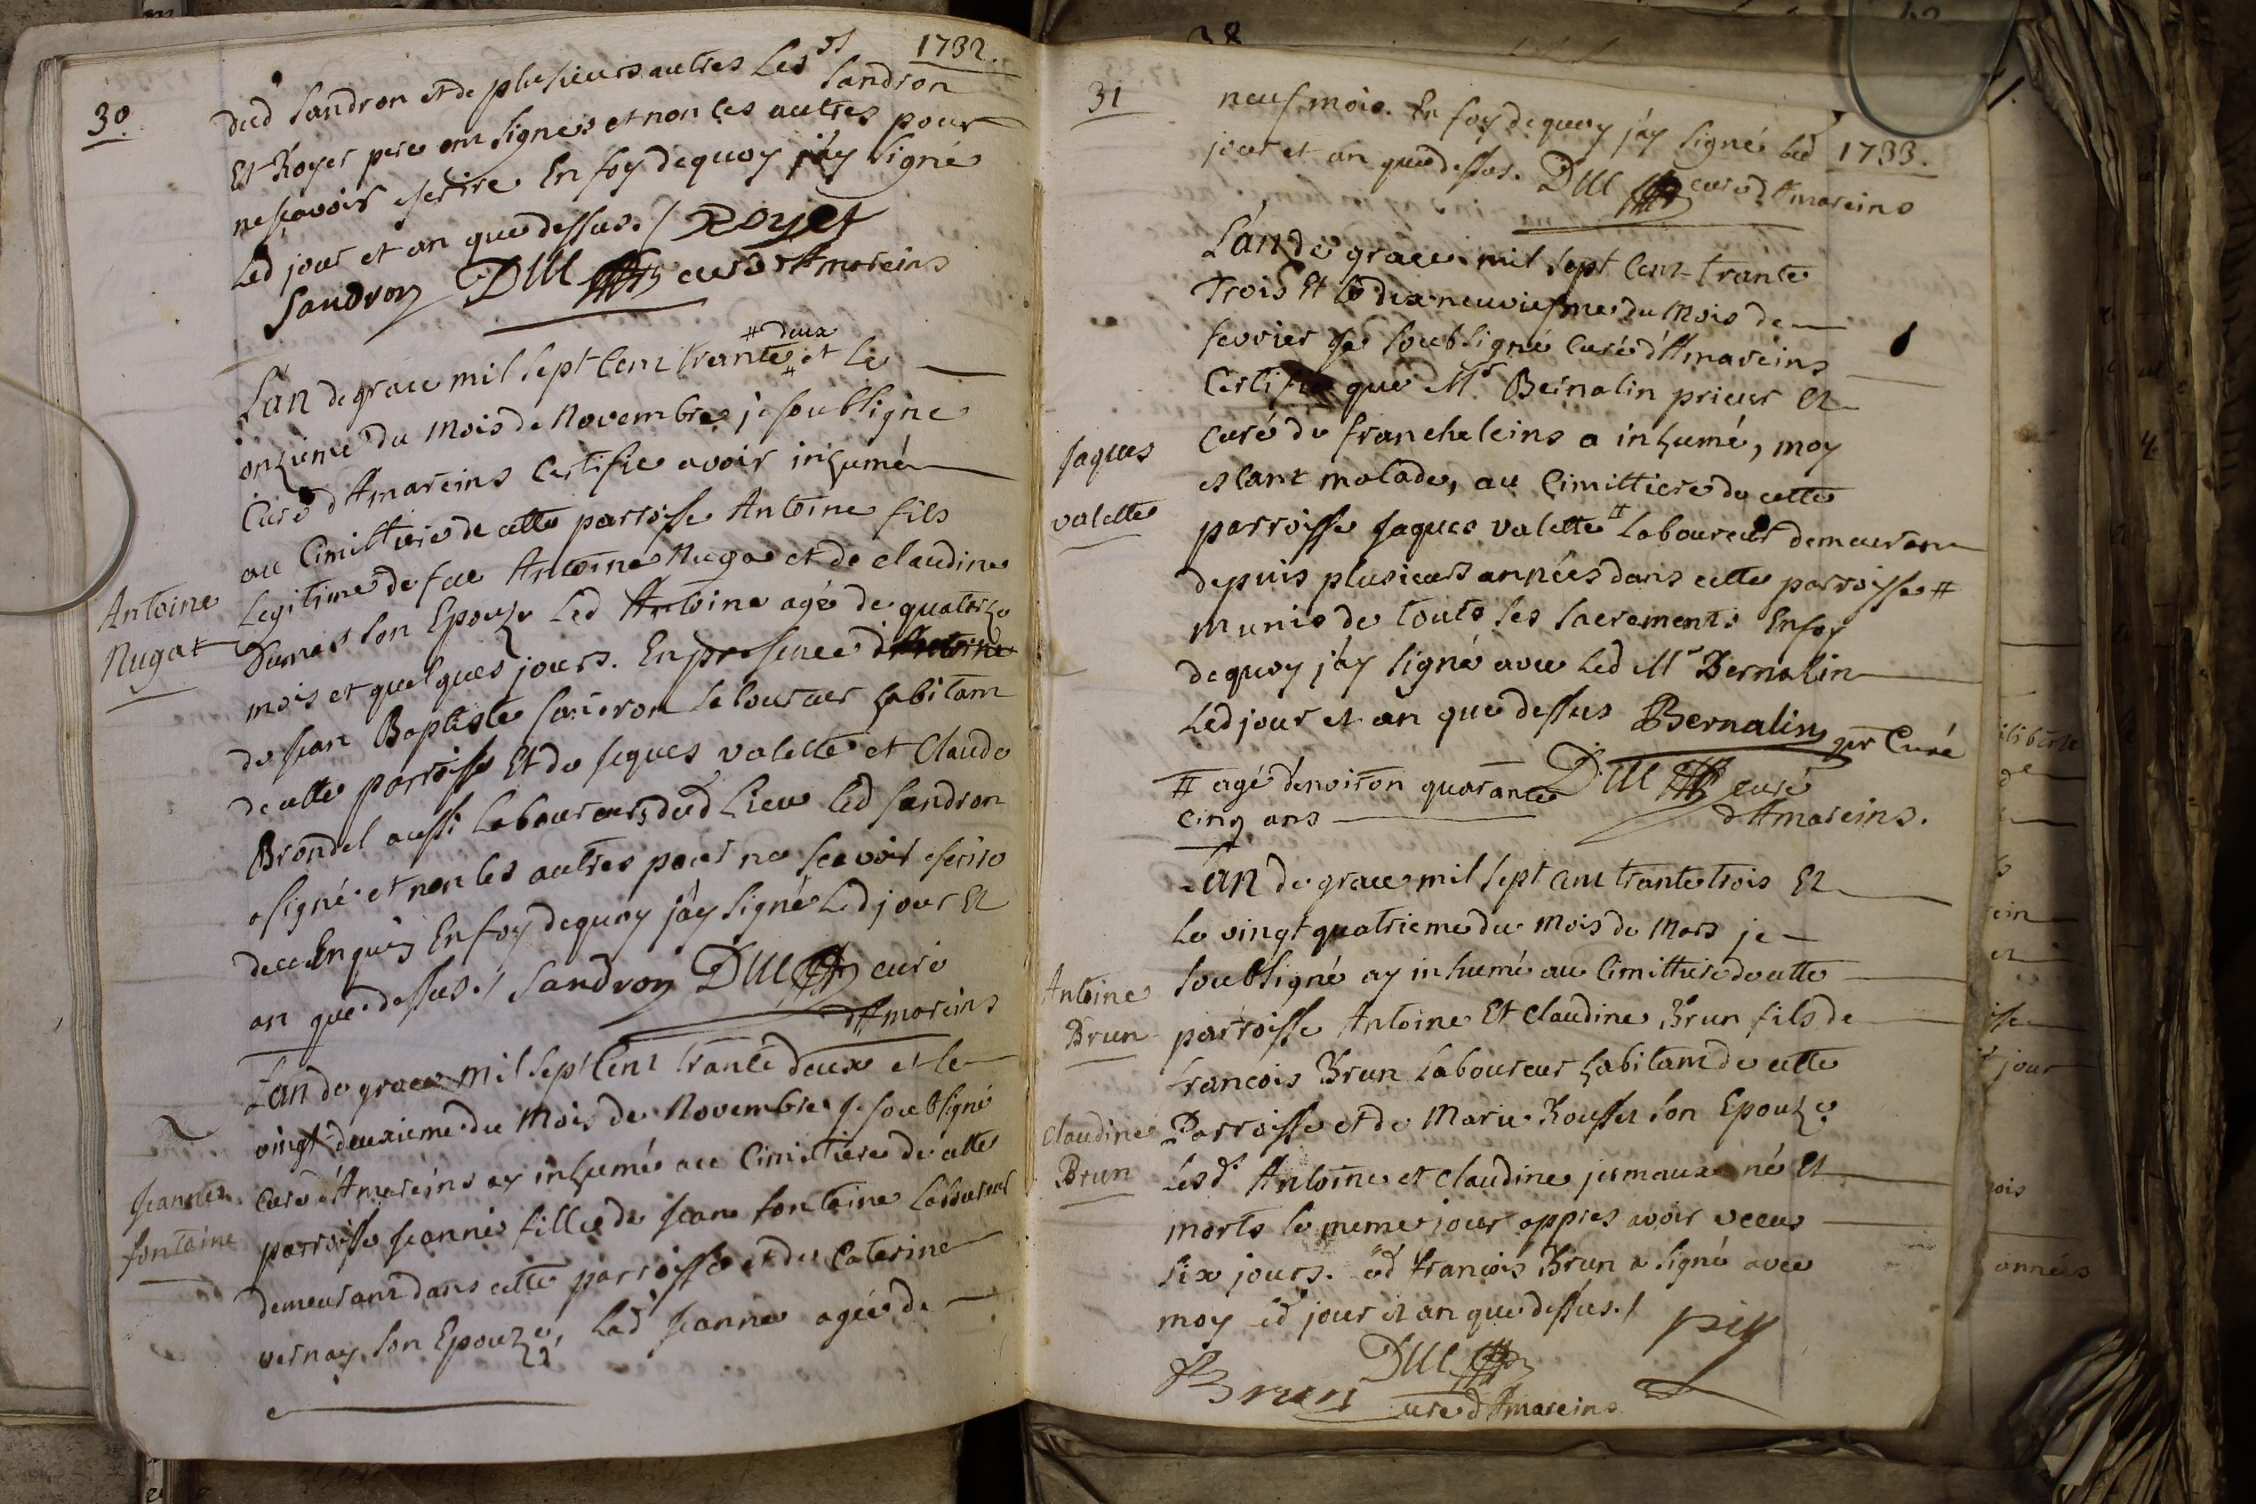 1732.
30
dud Sandron et de plusieurs autres Lesd Sandron
Et Royer pere ont signés et non les autres pour
ne sçavoir escrire En foy de quoy j'ay signé
led jour et an que dessus. / Royer
Sandron Dul curé d'Amareins
# deux
L'an de grace mil sept Cent trante # et le
onzieme du mois de Novembre je soubsigne
Curé d'Amareins Certifie avoir inhumé
au Cimittiere de cette parroisse Antoine fils
Antoine
Nugat
Legitime de feu Antoine Nuga et de Claudine
Dumas son Epouze led Antoine agé de quatorze
mois et quelques jours. En presence d'Antoine
de Jean Baptiste Sandron laboureur habitant
de cette parroisse Et de Jaques valette et Claude
Brondel aussi laboureurs dud Lieu led Sandron
a signé et non les autres pour ne sçavoir escrire
de ce Enquis En foy de quoy j'ay signé led jour Et
an que dessus. / Sandron Dul curé
d'Amareins
L'an de grace mil sept Cent trante deux et le
vingt deuxieme du Mois de Novembre je soubsigné
curé d'Amareins ay inhumé au Cimittiere de cette
Jeanne
fontaine
parroisse Jeanne fille de Jean fontaine Laboureur
demeurant dans cette parroisse et de Caterine
vernay son Epouze, lad Jeanne agée de
31
1733.
neuf mois. En foy de quoy j'ay signé led
jour et an que dessus. Dul curé d'Amareins
L'an de grace mil sept Cent trante
Trois Et le dix neuviesme du Mois de
fevrier je soubsigné Curé d'Amareins
Certifie que Mr Bernalin prieur Et
Curé de francheleins a inhumé, moy
Jaques
valette
estant malade, au Cimittiere de cette
parroisse Jaques valette # Laboureur demeurant
depuis plusieurs années dans cette parroisse #
munis de touts les sacrements En foy
de quoy j'ay signé avec led Mr Bernalin
Led jour et an que dessus Bernalin pr Curé
# agé d'environ quarante
cinq ans
Dul curé
d'Amareins.
L'an de grace mil sept cent trante trois Et
Le vingt quatrieme du mois de Mars je
soubsigné ay inhumé au Cimittiere de cette
Antoine
Brun
parroisse Antoine Et Claudine Brun fils de
francois Brun Laboureur habitant de cette
Claudine
Brun
Parroisse et de Marie Rousset son Epouze
Lesd. Antoine et Claudine jumaux né Et
morts le meme jour appres avoir vecus
six jours. led francois Brun a signé avec
moy led jour et an que dessus. /
Brun
Dul
curé d'Amareins